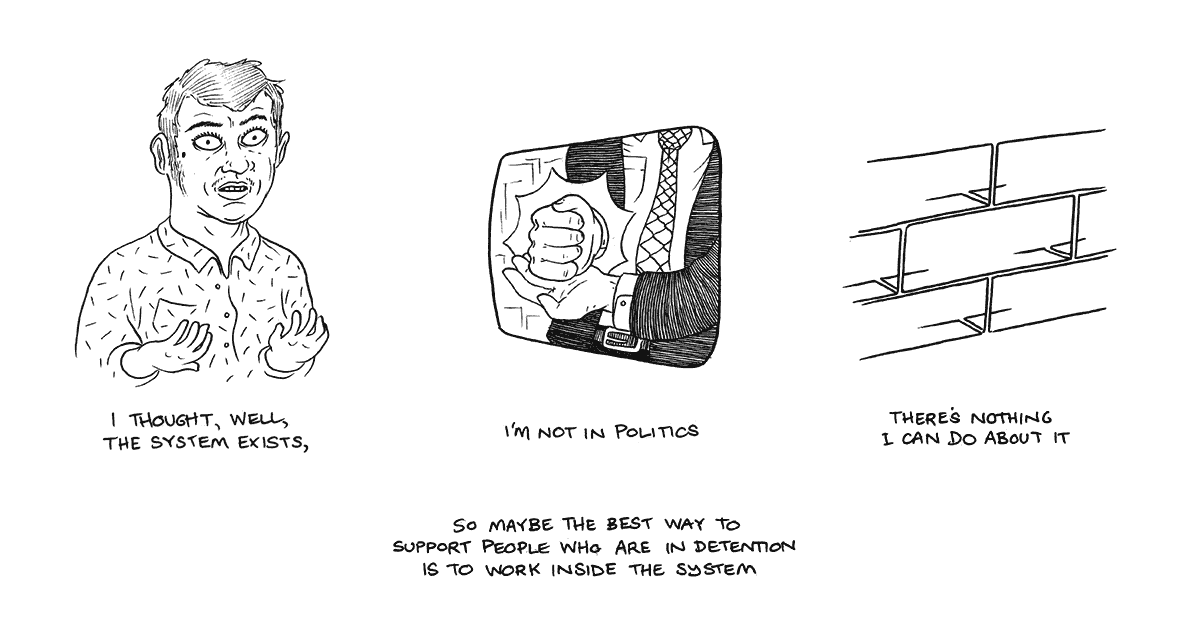 I THOUGHT, WELL,
THE SYSTEM EXISTS,
I'M NOT IN POLITICS
THERE'S NOTHING
I CAN DO ABOUT IT
SO MAYBE THE BEST WAY TO
SUPPORT PEOPLE WHO ARE IN DETENTION
IS TO WORK INSIDE THE SYSTEM